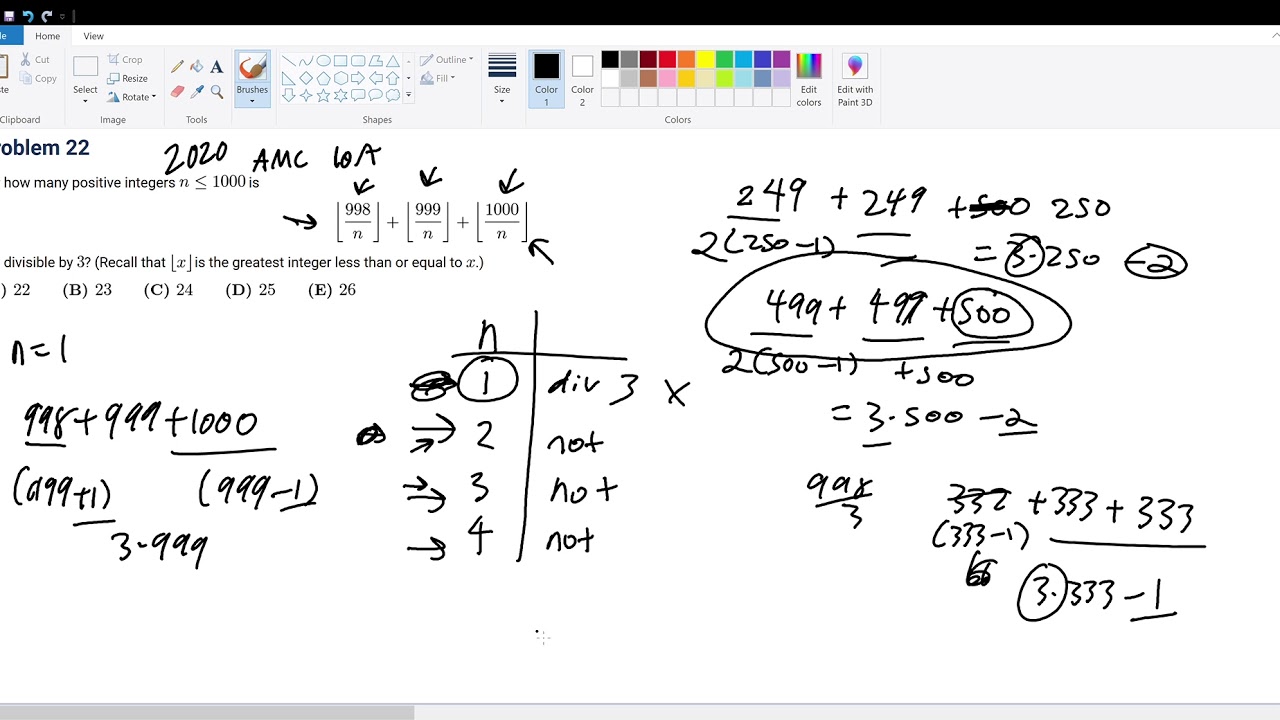 Home View
Cut
Copy
Clipboard
Select
Crop
Resize
Rotate
Image
Tools
Brushes
Shapes
Outline
Fill
Size
Color 1
Color 2
Colors
Edit colors
Edit with Paint 3D
oblem 22
2020 AMC 10A
how many positive integers n ≤ 1000 is
⌊998/n⌋ + ⌊999/n⌋ + ⌊1000/n⌋
divisible by 3? (Recall that ⌊x⌋ is the greatest integer less than or equal to x.)
) 22 (B) 23 (C) 24 (D) 25 (E) 26
n=1
998+999+1000
(999-1)
3·999
n
1 div 3 x
2 not
3 not
4 not
249 + 249 + 250
2(250-1)
= 3·250 -2
499 + 499 + 500
2(500-1) +500
= 3·500 -2
998/3
332 + 333 + 333
(333-1)
3·333 -1